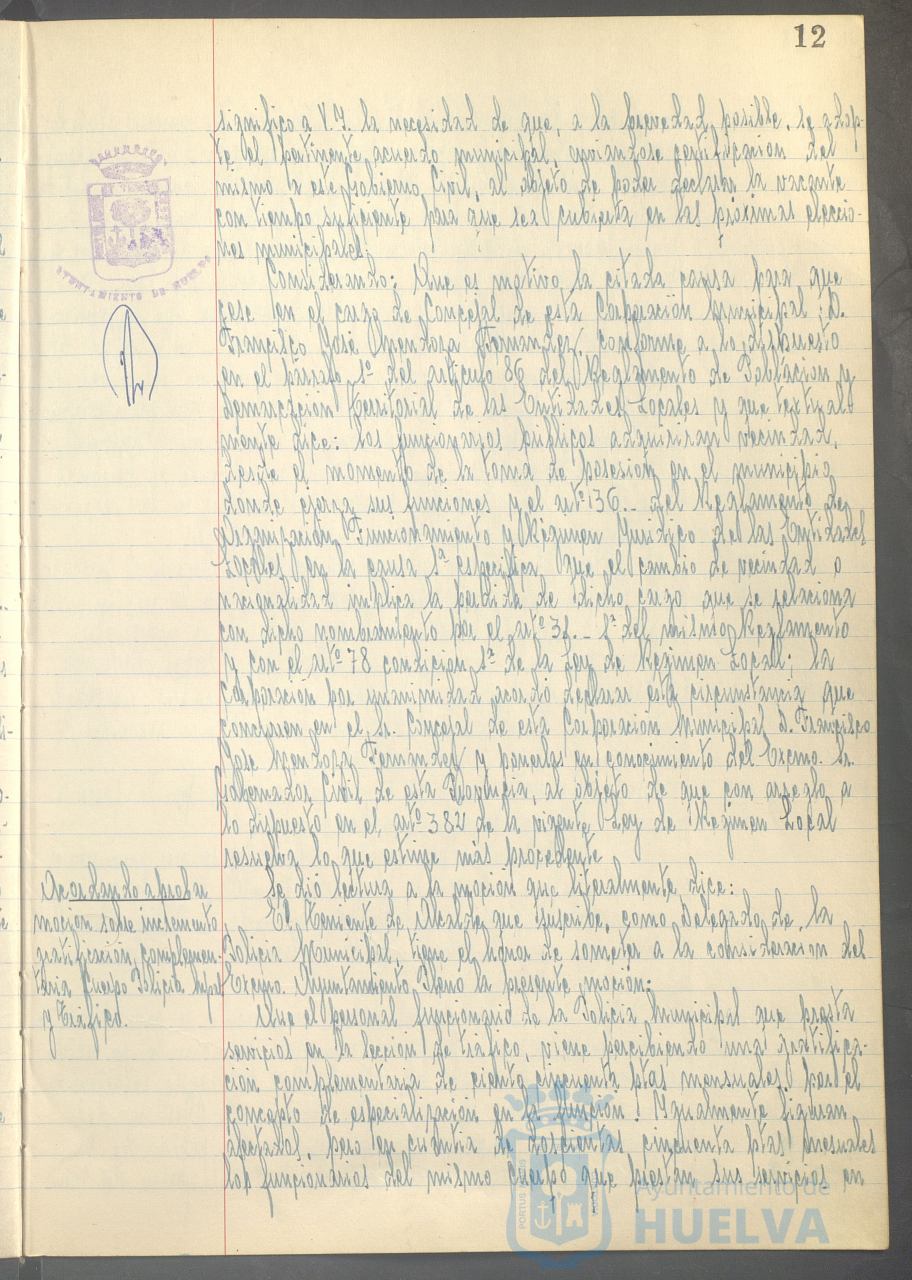 12
significo a V.I. la necesidad de que, a la brevedad posible, se adop-
te el pertinente acuerdo municipal, enviandose certificacion del
mismo a este Gobierno Civil, al objeto de poder declarar la vacante
con tiempo suficiente para que sea cubierta en las próximas eleccio-
nes municipales.
AYUNTAMIENTO DE HUELVA
Considerando: Que es motivo la citada causa para que
cese en el cargo de Concejal de esta Corporación Municipal, D.
Francisco José Mendoza Fernandez, conforme a lo dispuesto
en el párrafo 1º del artículo 86 del Reglamento de Población y
Demarcación Territorial de las Entidades Locales y que textual-
mente dice: los funcionarios públicos adquirirán vecindad,
desde el momento de la toma de posesión en el municipio
donde ejerza sus funciones y el artº 136.- del Reglamento de
Organización, Funcionamiento y Régimen Jurídico de las Entidades
Locales en la causa 1ª especifica que el cambio de vecindad o
nacionalidad implica la perdida de dicho cargo que se relaciona
con dicho nombramiento por el artº 38.- 1ª del mismo Reglamento
y con el artº 78 condición 1ª de la Ley de Régimen Local; la
Corporación por unanimidad acordó declarar esta circunstancia que
concurren en el Sr. Concejal de esta Corporación Municipal D. Francisco
José Mendoza Fernandez y ponerlas en conocimiento del Excmo. Sr.
Gobernador Civil de esta Provincia, al objeto de que con arreglo a
lo dispuesto en el artº 382 de la vigente Ley de Régimen Local
resuelva lo que estime más procedente.
Acordando aprobar
moción sobre incremento
gratificación complemen-
taria Cuerpo Policía Mpal
y Tráfico.
Se dió lectura a la moción que literalmente dice:
El Teniente de Alcalde que suscribe, como Delegado de la
Policia Municipal, tiene el honor de someter a la consideracion del
Excmo. Ayuntamiento Pleno la presente moción:
Que el personal funcionario de la Policía Municipal que presta
servicios en la sección de tráfico, viene percibiendo una gratifica-
ción complementaria de ciento cincuenta ptas mensuales por el
concepto de especialización en la función. Igualmente figuran
afectados, pero en cuantia de doscientas cincuenta ptas mensuales
los funcionarios del mismo Cuerpo que prestan sus servicios en
Ayuntamiento de
HUELVA